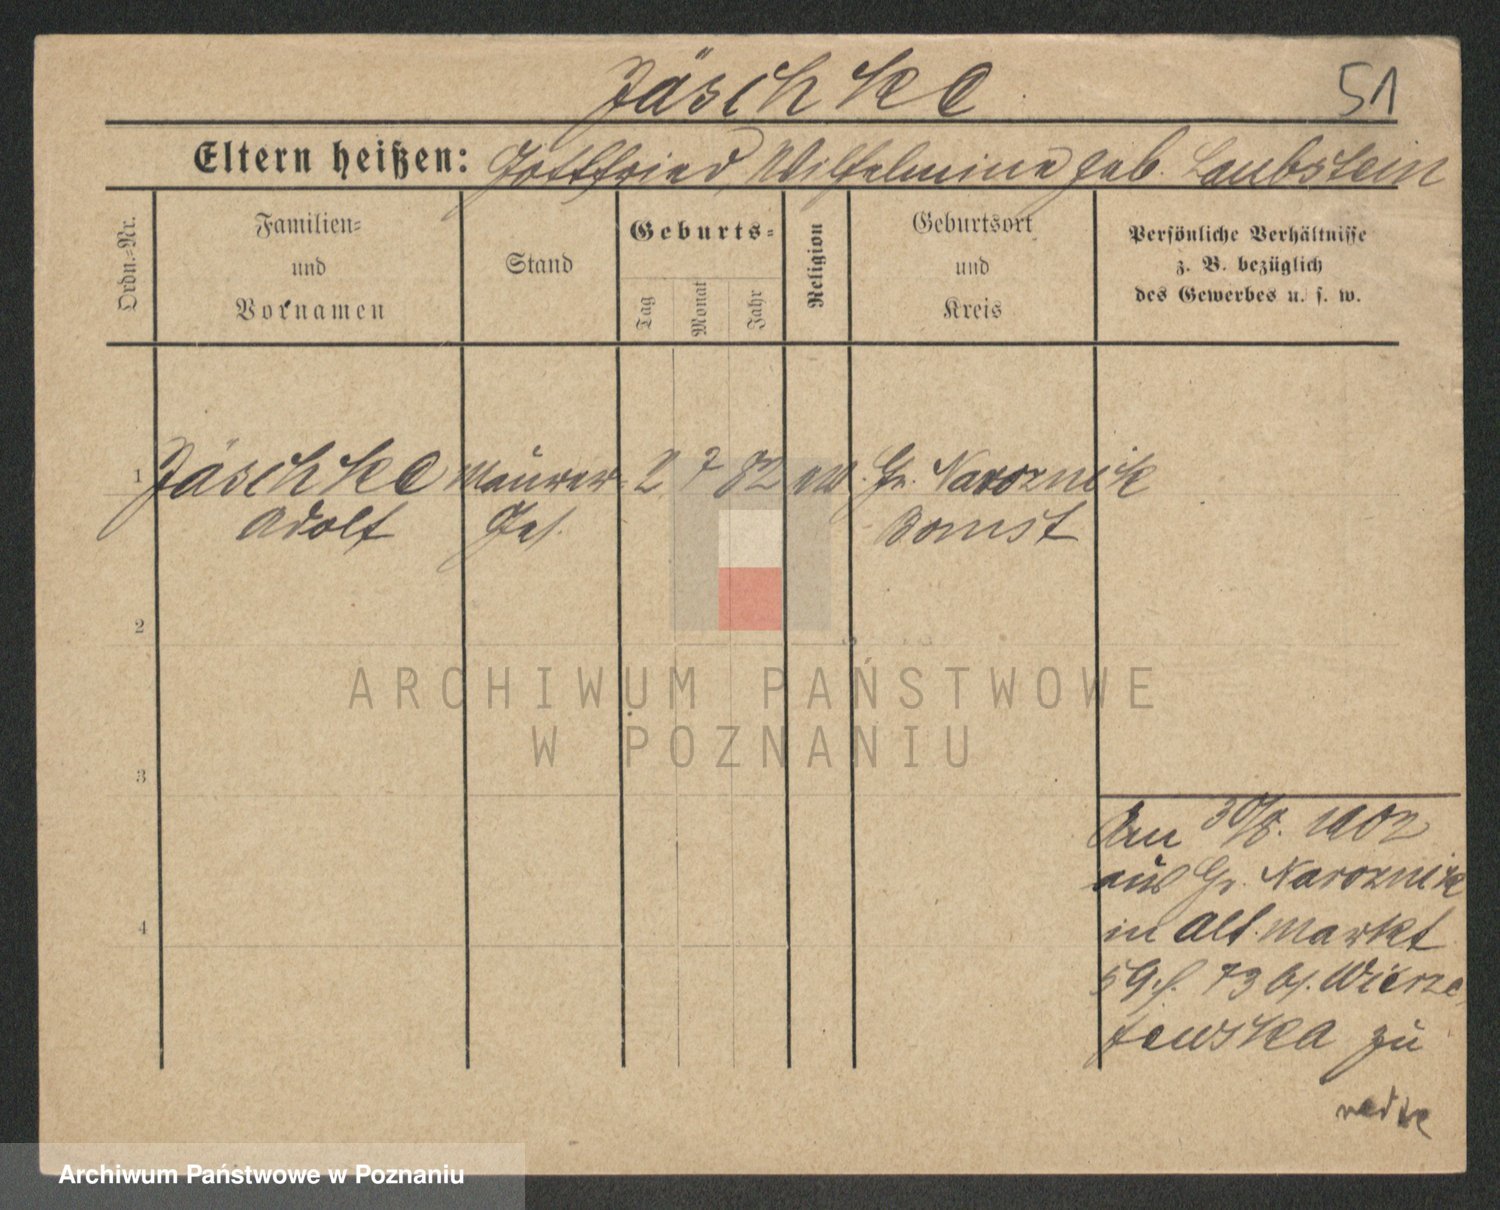 Jäschke
51
Eltern heißen: Gottfried, Wilhelmine geb. Laubstein
Ordn.-Nr.
Familien-
und
Vornamen
Stand
Geburts-
Tag
Monat
Jahr
Religion
Geburtsort
und
Kreis
Persönliche Verhältnisse
z. B. bezüglich
des Gewerbes u. s. w.
1 Jäschke Maurer 2 7 82 ev. Gr. Naroznik
Adolf Ges. Bomst
2
ARCHIWUM PAŃSTWOWE
W POZNANIU
3
Am 30/8. 1902
aus Gr. Naroznik
in Alt. Markt
73 b/. Wierze
jewska zu
4
Archiwum Państwowe w Poznaniu